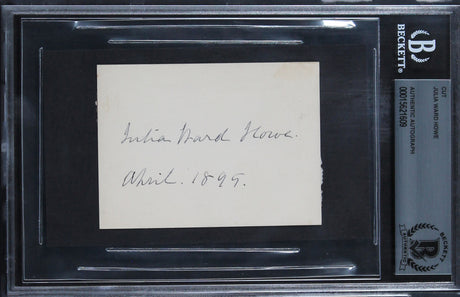 Julia Ward Howe.
April. 1899.
BECKETT
CUT
JULIA WARD HOWE
AUTHENTIC AUTOGRAPH
00015621609
BECKETT